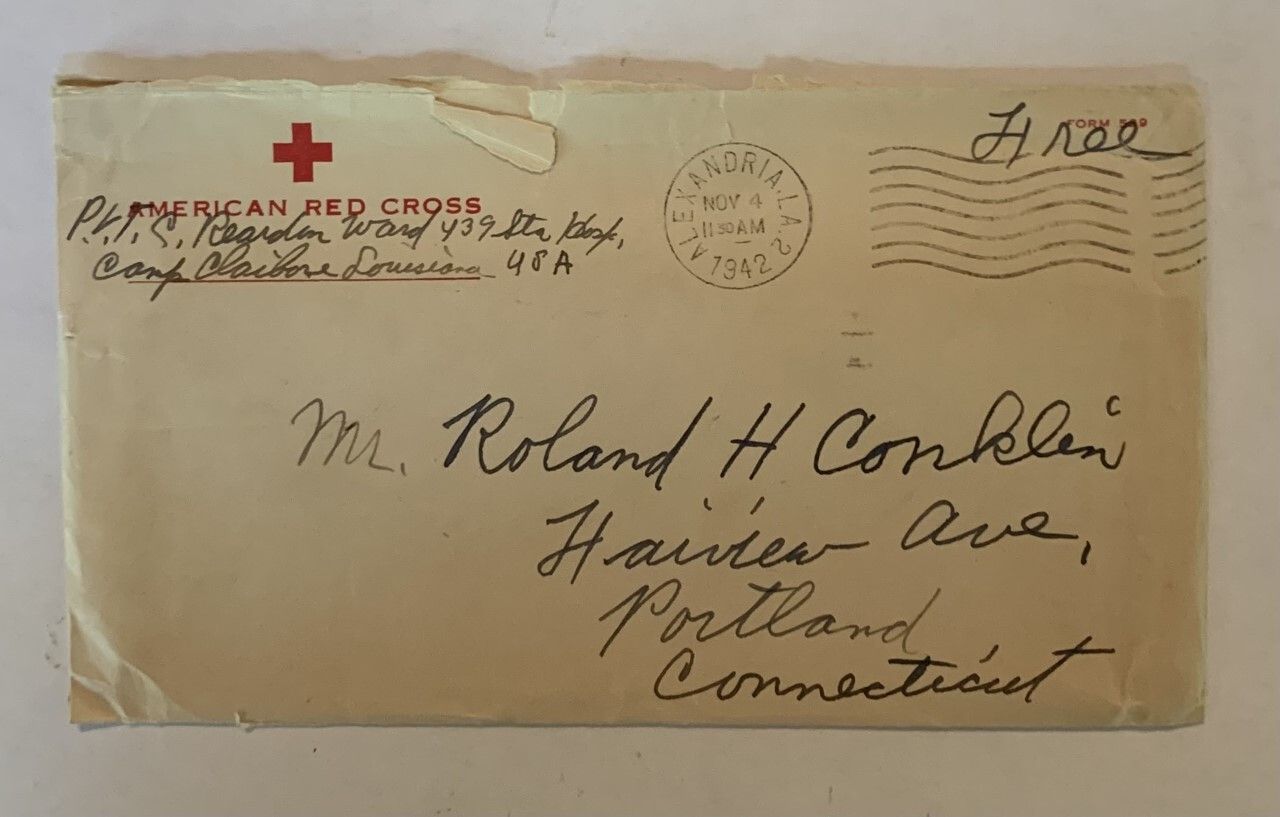 AMERICAN RED CROSS
P.V.T. C. Reardon Ward 439 Sta Hosp,
Camp Claibone Louisiana USA
ALEXANDRIA, LA. 2
NOV 4
11 30 AM
1942
FORM 539
Free
Mr. Roland H Conklin
Faiview Ave,
Portland
Connecticut